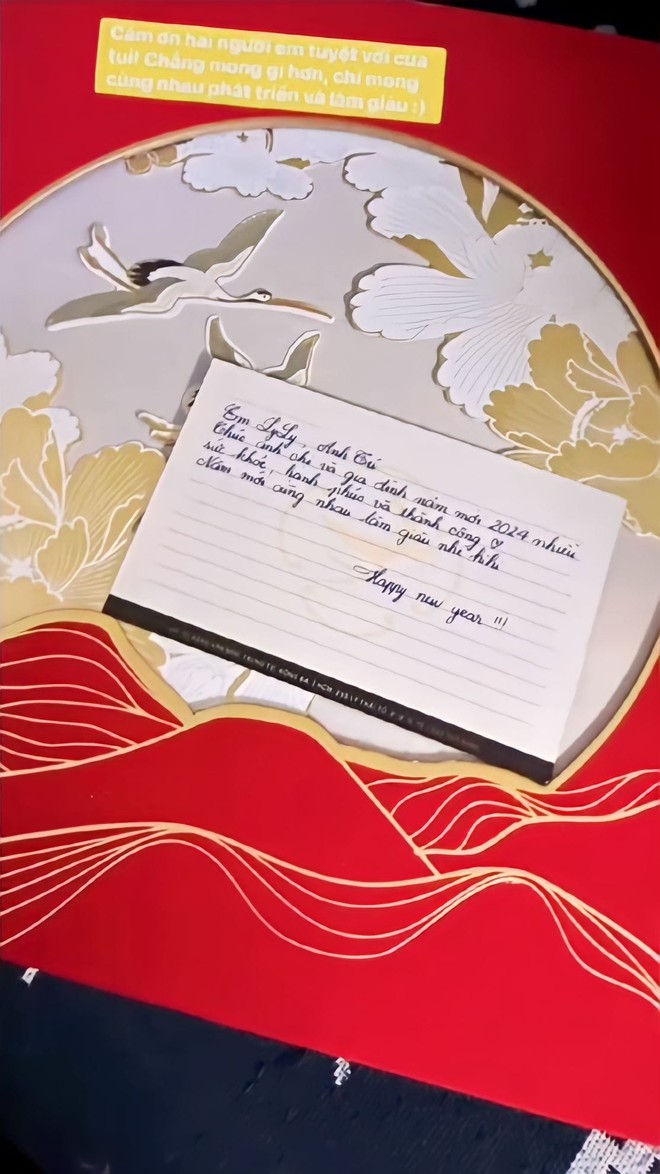 Cảm ơn hai người em tuyệt vời của
tui! Chẳng mong gì hơn, chỉ mong
cùng nhau phát triển và làm giàu :)
Em LyLy, Anh Tú
Chúc anh chị và gia đình năm mới 2024 nhiều
sức khỏe, hạnh phúc và thành công ♡
Năm mới cùng nhau làm giàu nhé hihi
Happy new year !!!
TRUNG TỰ, ĐỐNG ĐA | HCM: 233 LÝ THÁI TỔ